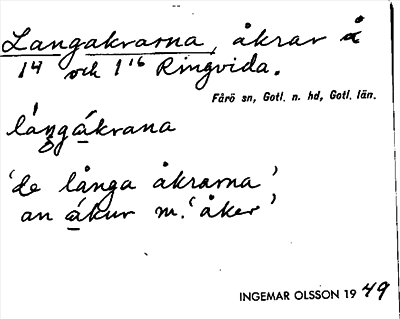 Langakrarna, åkrar å
1⁴ och 1¹⁶ Ringvida.
Fårö sn, Gotl. n. hd, Gotl. län.
láŋgákrana
'de långa åkrarna'
an ákur m. 'åker'
INGEMAR OLSSON 19 49